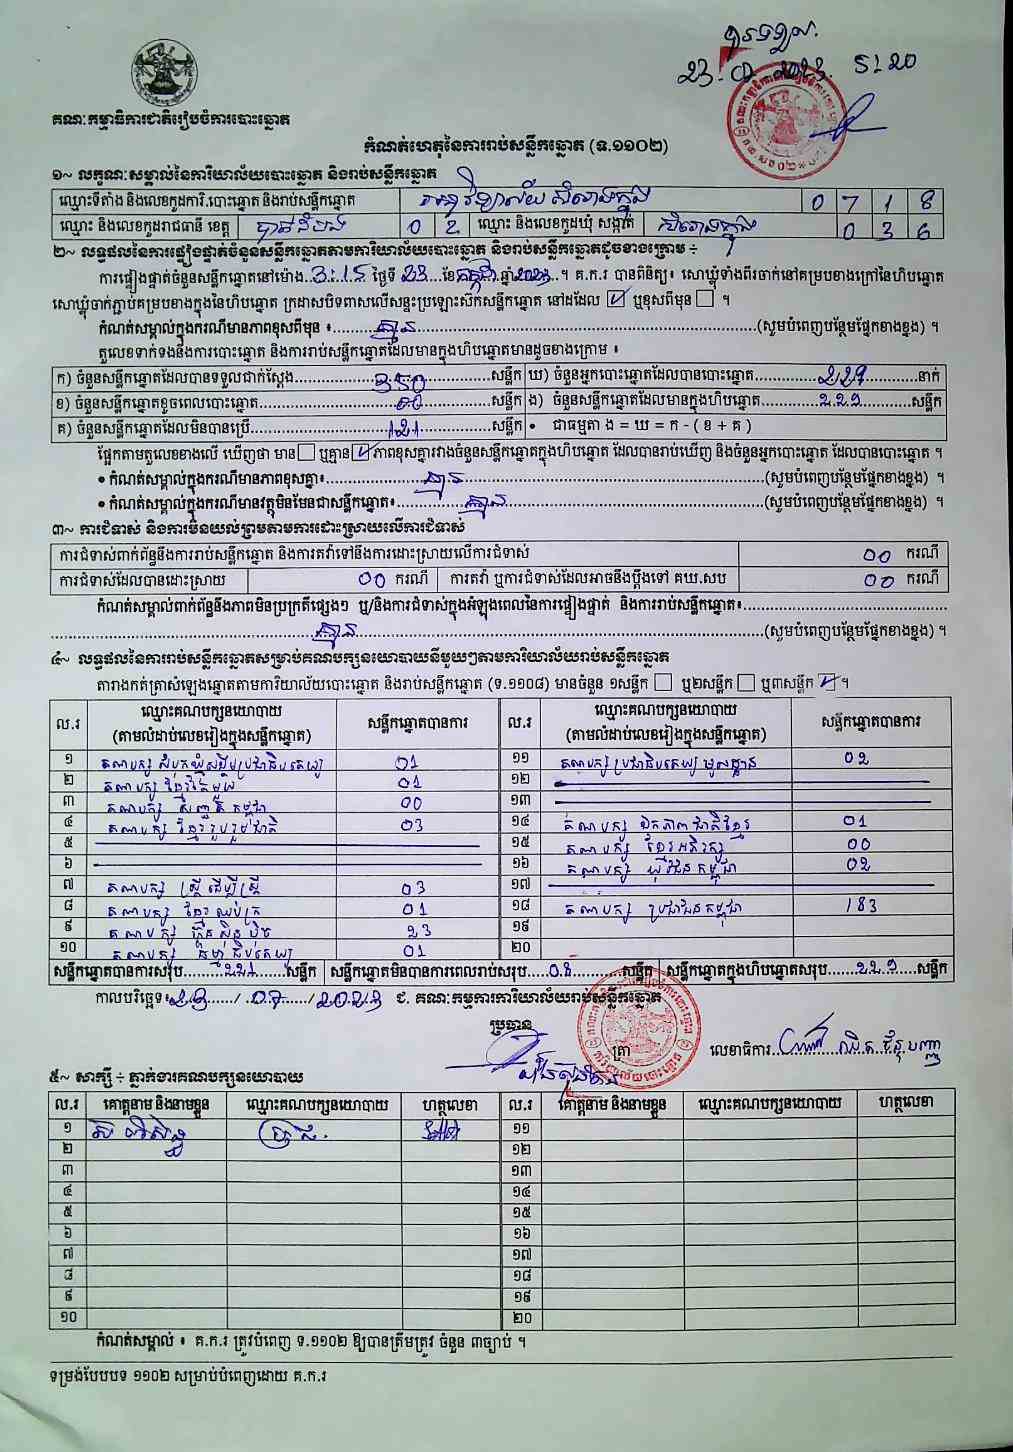 បានទទួល
23-07-2023 5:20
គណៈកម្មាធិការជាតិរៀបចំការបោះឆ្នោត
កំណត់ហេតុនៃការរាប់សន្លឹកឆ្នោត (ទ.១១០២)
១~ លក្ខណៈសម្គាល់នៃការិយាល័យបោះឆ្នោត និងរាប់សន្លឹកឆ្នោត
ឈ្មោះទីតាំង និងលេខកូដការិ.បោះឆ្នោត និងរាប់សន្លឹកឆ្នោត វិទ្យាល័យ សំរោងក្នុង 0 7 1 8
ឈ្មោះ និងលេខកូដរាជធានី ខេត្ត បាត់ដំបង 0 2 ឈ្មោះ និងលេខកូដឃុំ សង្កាត់ សំរោងក្នុង 0 3 6
២~ លទ្ធផលនៃការផ្ទៀងផ្ទាត់ចំនួនសន្លឹកឆ្នោតតាមការិយាល័យបោះឆ្នោត និងរាប់សន្លឹកឆ្នោតដូចខាងក្រោម ÷
ការផ្ទៀងផ្ទាត់ចំនួនសន្លឹកឆ្នោតនៅម៉ោង 3:15 ថ្ងៃទី 23 ខែ កក្កដា ឆ្នាំ 2023 ។ គ.ក.រ បានពិនិត្យ៖ សោឃ្លុំទាំងពីរចាក់នៅគម្របខាងក្រៅនៃហិបឆ្នោត
សោឃ្លុំចាក់ភ្ជាប់គម្របខាងក្នុងនៃហិបឆ្នោត ក្រដាសបិទពាសលើសន្ទះប្រឡោះស៊កសន្លឹកឆ្នោត នៅដដែល ☑ ឬខុសពីមុន ☐ ។
កំណត់សម្គាល់ក្នុងករណីមានភាពខុសពីមុន ៖ គ្មាន (សូមបំពេញបន្ថែមផ្នែកខាងខ្នង) ។
តួលេខទាក់ទងនឹងការបោះឆ្នោត និងការរាប់សន្លឹកឆ្នោតដែលមានក្នុងហិបឆ្នោតមានដូចខាងក្រោម ៖
ក) ចំនួនសន្លឹកឆ្នោតដែលបានទទួលជាក់ស្តែង 350 សន្លឹក ឃ) ចំនួនអ្នកបោះឆ្នោតដែលបានបោះឆ្នោត 229 នាក់
ខ) ចំនួនសន្លឹកឆ្នោតខូចពេលបោះឆ្នោត 00 សន្លឹក ង) ចំនួនសន្លឹកឆ្នោតដែលមានក្នុងហិបឆ្នោត 229 សន្លឹក
គ) ចំនួនសន្លឹកឆ្នោតដែលមិនបានប្រើ 121 សន្លឹក • ជាធម្មតា ង = ឃ = ក - ( ខ + គ )
ផ្អែកតាមតួលេខខាងលើ ឃើញថា មាន ☐ ឬគ្មាន ☑ ភាពខុសគ្នារវាងចំនួនសន្លឹកឆ្នោតក្នុងហិបឆ្នោត ដែលបានរាប់ឃើញ និងចំនួនអ្នកបោះឆ្នោត ដែលបានបោះឆ្នោត ។
• កំណត់សម្គាល់ក្នុងករណីមានភាពខុសគ្នា៖ គ្មាន (សូមបំពេញបន្ថែមផ្នែកខាងខ្នង) ។
• កំណត់សម្គាល់ក្នុងករណីមានវត្ថុមិនមែនជាសន្លឹកឆ្នោត៖ គ្មាន (សូមបំពេញបន្ថែមផ្នែកខាងខ្នង) ។
៣~ ការជំទាស់ និងការមិនយល់ព្រមតាមការដោះស្រាយលើការជំទាស់
ការជំទាស់ពាក់ព័ន្ធនឹងការរាប់សន្លឹកឆ្នោត និងការតវ៉ាទៅនឹងការដោះស្រាយលើការជំទាស់ 00 ករណី
ការជំទាស់ដែលបានដោះស្រាយ 00 ករណី ការតវ៉ា ឬការជំទាស់ដែលអាចនឹងប្តឹងទៅ គឃ.សប 00 ករណី
កំណត់សម្គាល់ពាក់ព័ន្ធនឹងភាពមិនប្រក្រតីផ្សេងៗ ឬ/និងការជំទាស់ក្នុងអំឡុងពេលនៃការផ្ទៀងផ្ទាត់ និងការរាប់សន្លឹកឆ្នោត៖
គ្មាន (សូមបំពេញបន្ថែមផ្នែកខាងខ្នង) ។
៤~ លទ្ធផលនៃការរាប់សន្លឹកឆ្នោតសម្រាប់គណបក្សនយោបាយនីមួយៗតាមការិយាល័យរាប់សន្លឹកឆ្នោត
តារាងកត់ត្រាសំឡេងឆ្នោតតាមការិយាល័យបោះឆ្នោត និងរាប់សន្លឹកឆ្នោត (ទ.១១០៨) មានចំនួន ១សន្លឹក ☐ ឬ២សន្លឹក ☐ ឬ៣សន្លឹក ☑ ។
ល.រ ឈ្មោះគណបក្សនយោបាយ (តាមលំដាប់លេខរៀងក្នុងសន្លឹកឆ្នោត) សន្លឹកឆ្នោតបានការ ល.រ ឈ្មោះគណបក្សនយោបាយ (តាមលំដាប់លេខរៀងក្នុងសន្លឹកឆ្នោត) សន្លឹកឆ្នោតបានការ
១ គណបក្ស សំបុកឃ្មុំសង្គមប្រជាធិបតេយ្យ 01 ១១ គណបក្ស ប្រជាធិបតេយ្យ មូលដ្ឋាន 02
២ គណបក្ស ខ្មែរតែមួយ 01 ១២
៣ គណបក្ស សញ្ជាតិ កម្ពុជា 00 ១៣
៤ គណបក្ស ខ្មែររួបរួមជាតិ 03 ១៤ គណបក្ស ឯកភាពជាតិខ្មែរ 01
៥ ១៥ គណបក្ស ខ្មែរអភិរក្ស 00
៦ ១៦ គណបក្ស យុវជន កម្ពុជា 02
៧ គណបក្ស ស្ត្រី ដើម្បីស្ត្រី 03 ១៧
៨ គណបក្ស ខ្មែរឈប់ក្រ 01 ១៨ គណបក្ស ប្រជាជនកម្ពុជា 183
៩ គណបក្ស ហ្វ៊ុនស៊ិនប៉ិច 23 ១៩
១០ គណបក្ស ធម្មាធិបតេយ្យ 01 ២០
សន្លឹកឆ្នោតបានការសរុប 221 សន្លឹក សន្លឹកឆ្នោតមិនបានការពេលរាប់សរុប 08 សន្លឹក សន្លឹកឆ្នោតក្នុងហិបឆ្នោតសរុប 229 សន្លឹក
កាលបរិច្ឆេទ៖ 23 / 07 / 2023 ជ. គណៈកម្មការការិយាល័យរាប់សន្លឹកឆ្នោត
ប្រធាន
ត្រា លេខាធិការ
៥~ សាក្សី ÷ ភ្នាក់ងារគណបក្សនយោបាយ
ល.រ គោត្តនាម និងនាមខ្លួន ឈ្មោះគណបក្សនយោបាយ ហត្ថលេខា ល.រ គោត្តនាម និងនាមខ្លួន ឈ្មោះគណបក្សនយោបាយ ហត្ថលេខា
១ ១១
២ ១២
៣ ១៣
៤ ១៤
៥ ១៥
៦ ១៦
៧ ១៧
៨ ១៨
៩ ១៩
១០ ២០
កំណត់សម្គាល់ ៖ គ.ក.រ ត្រូវបំពេញ ទ.១១០២ ឱ្យបានត្រឹមត្រូវ ចំនួន ៣ច្បាប់ ។
ទម្រង់បែបបទ ១១០២ សម្រាប់បំពេញដោយ គ.ក.រ